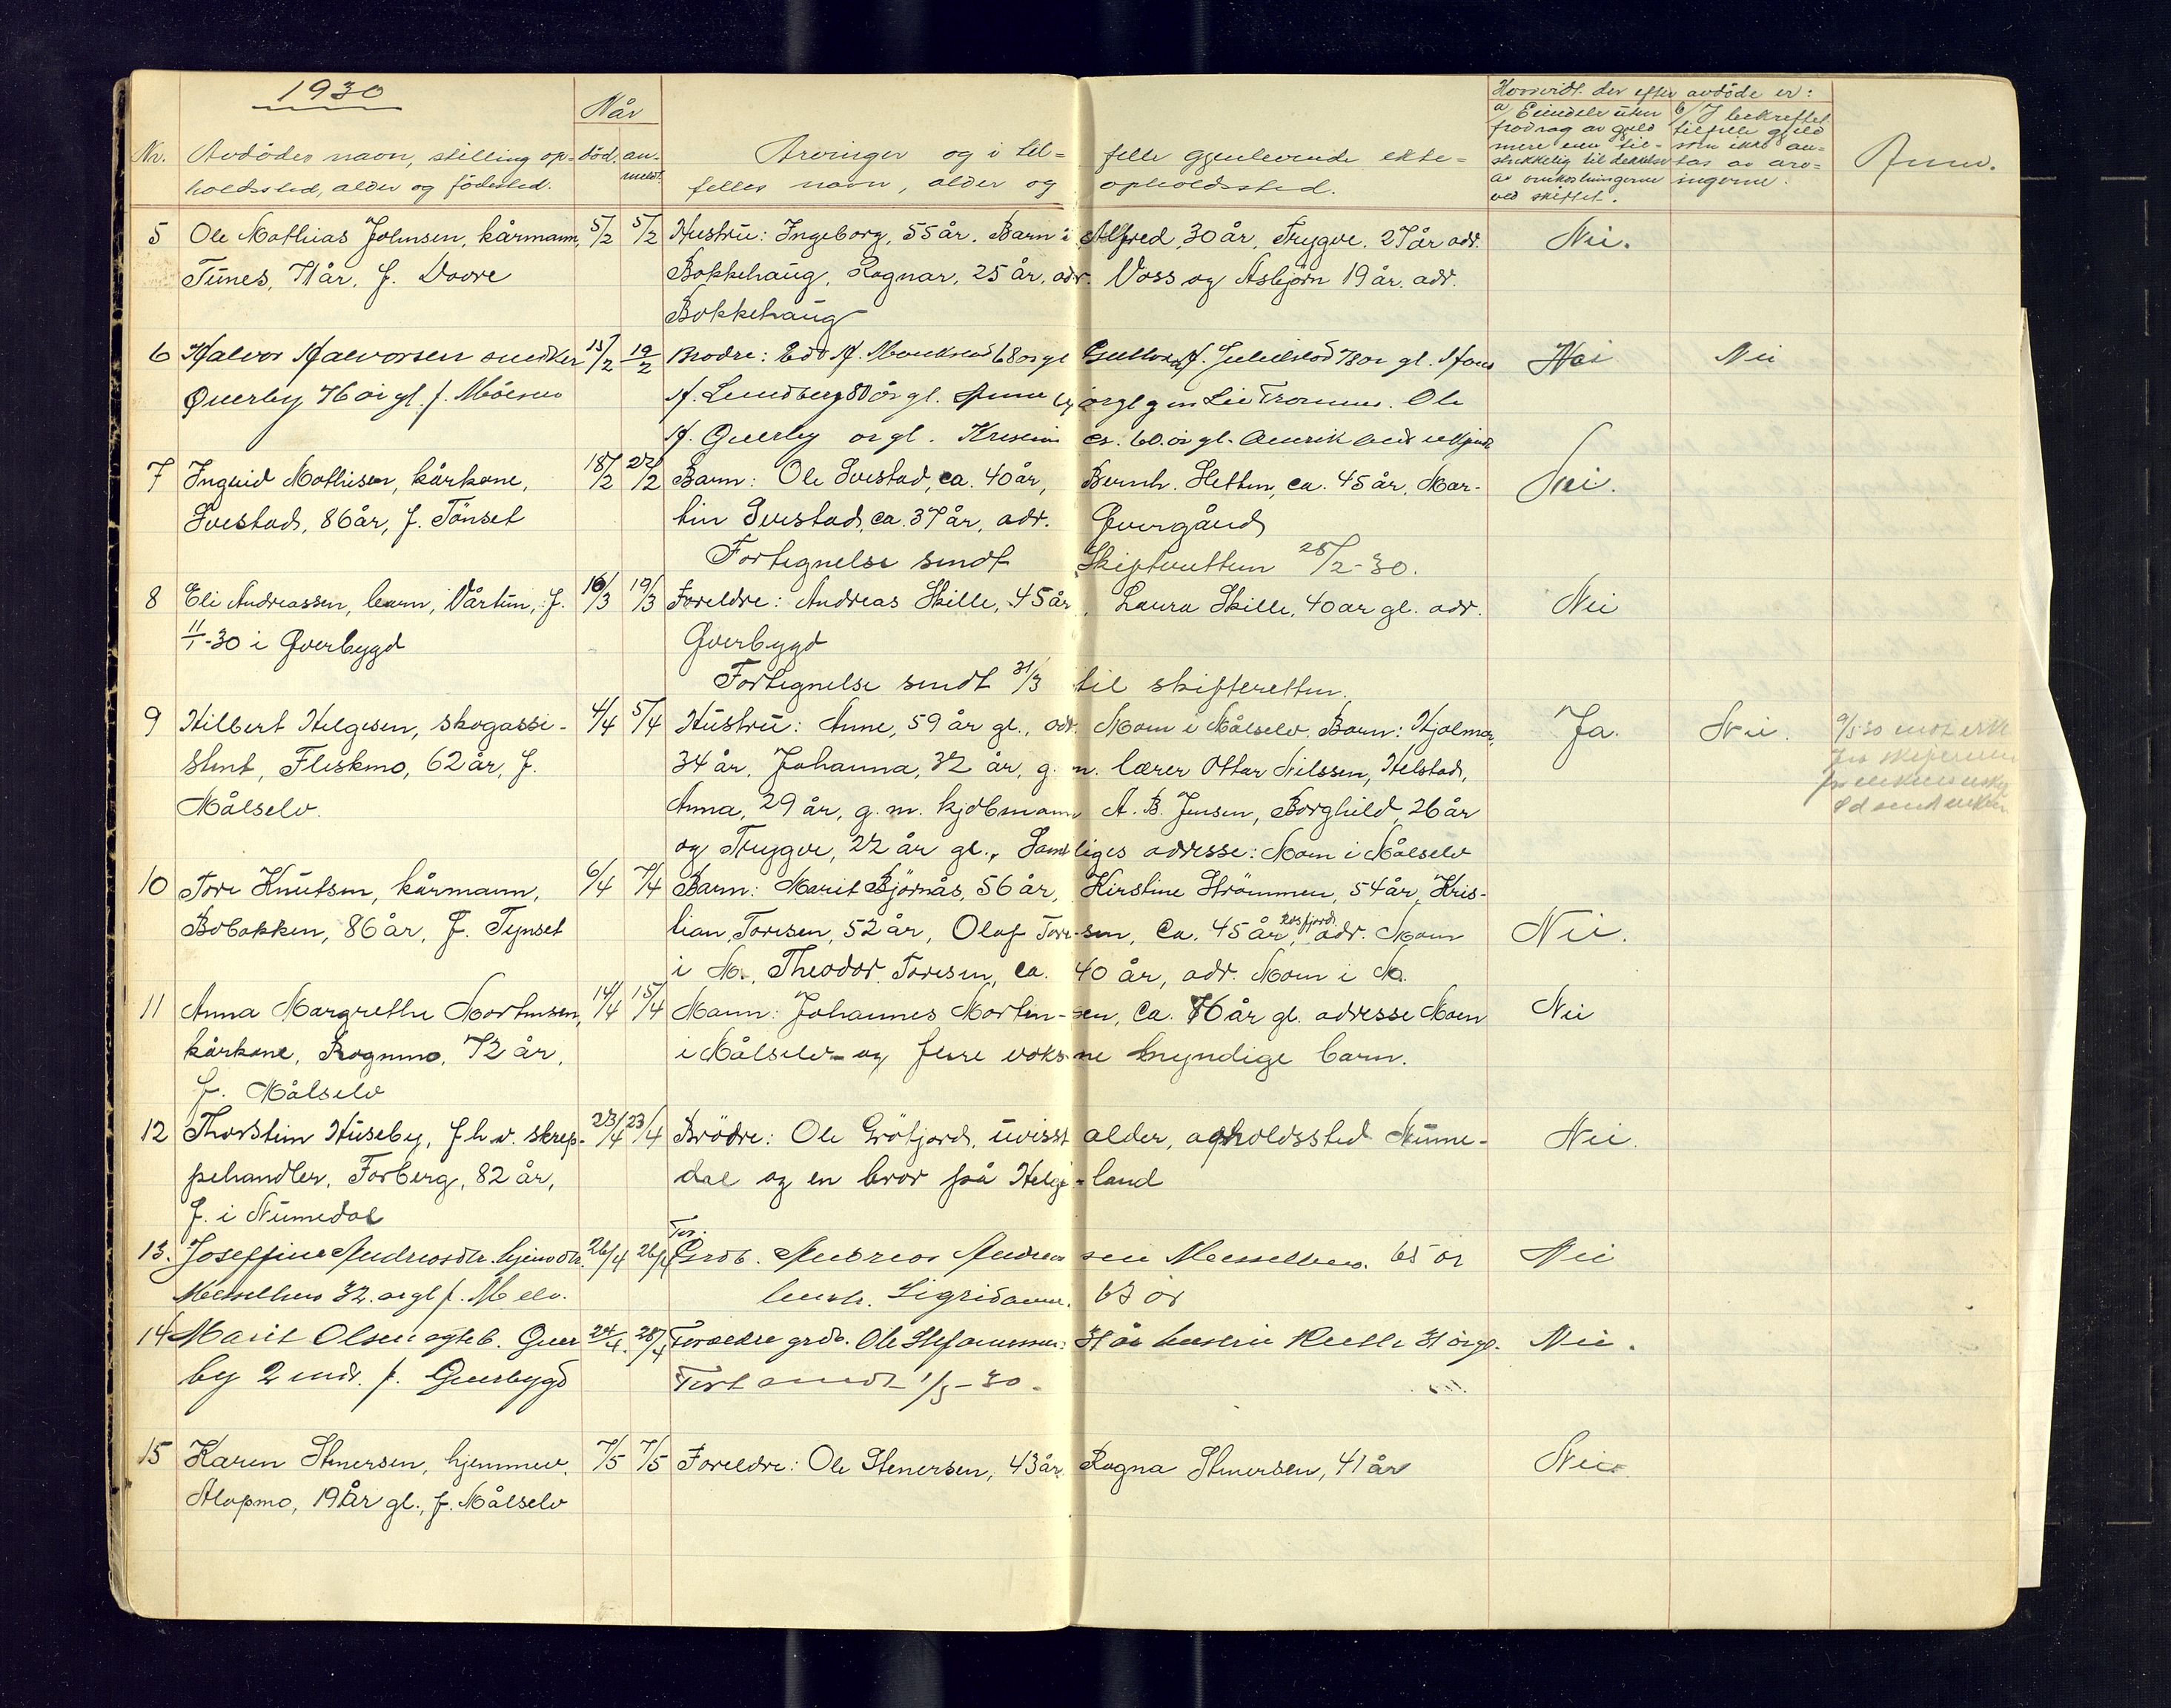 1930
Nr.
Avdødes navn, stilling op-
holdssted, alder og fødested.
Når
død. an-
meldt.
Arvinger og i til- felle gjenlevende ekte-
felles navn, alder og opholdssted.
Hvorvidt der efter avdøde er:
a/ Eiendele uten
fradrag av gjeld
mere enn til-
strekkelig til dekkelse
av omkostningerne
ved skiftet.
b/ I bekreftet
tilfelle gjeld
som ikke an-
tas av arv-
ingerne.
Anm.
5 Ole Mathias Johnsen, kårmann, 5/2 5/2 Hustru: Ingeborg, 55 år. Barn: Alfred, 30 år, Trygve, 27 år adr. Nei.
Tunes, 71 år, f. Dovre Bakkehaug, Ragnar, 25 år, adr. Voss og Asbjørn 19 år. adr.
Bakkehaug
6 Halvor Halvorsen snedker 15/2 19/2 Brødre: Edv. H. 68 år gl H. 78 år gl. Hans Nei Nei
Øverby 76 år gl. f. H. Lundberg 80 år gl. Anna år gl g m Ole
H. Øverby år gl. ca. 60 år gl. Amerika
7 Ingrid Mathisen, kårkone, 18/2 22/2 Barn: Ole Ivestad, ca. 40 år, Bernh. Sletten, ca. 45 år, Mar- Nei.
Ivestad, 86 år, f. Tønset tin Ivestad, ca. 37 år, adr. Øvergård
Fortegnelse sendt Skifteretten 28/2-30.
8 Eli Andreassen, barn, Vårtun, f. 16/3 19/3 Foreldre: Andreas Skille, 45 år, Laura Skille, 40 år gl. adr. Nei
11/1-30 i Øverbygd Øverbygd
Fortegnelse sendt 31/3 til skifteretten.
9 Hilbert Helgesen, skogassi- 4/4 5/4 Hustru: Anne, 59 år gl., adr. Moen i Målselv. Barn: Hjalmar, Ja. Nei.
stent, Fleskmo, 62 år, f. 34 år, Johanna, 32 år, g. m. lærer Ottar Nilssen, Helstad,
Målselv. Anna, 29 år, g. m. kjøbmann A. B. Jensen, Borghild, 26 år
og Trygve, 22 år gl., Samtliges adresse: Moen i Målselv
10 Tore Knutsen, kårmann, 6/4 7/4 Barn: Marit Bjørnås, 56 år, Kirstine Strømmen, 54 år, Kris-
Bobakken, 86 år, f. Tynset tian Toresen, 52 år, Olaf Tore-sen, ca. 45 år, Rosfjord, adr. Moen Nei.
i M., Theodor Toresen, ca. 40 år, adr. Moen i M.
11 Anna Margrethe Mortensen, 14/4 15/4 Mann: Johannes Morten-sen, ca. 76 år gl. adresse Moen Nei
kårkone, Rognmo, 72 år, i Målselv og flere voks-ne myndige barn.
f. Målselv
12 Thorstein Huseby, f.h.v. skrep- 23/4 23/4 Brødre: Ole Gröfjord, uvisst alder, opholdssted Nume- Nei.
pehandler, Forberg, 82 år, dal og en bror på Helge-land
f. i Numedal
13. Joseffine Andreasdtr. hjemdtr. 26/4 26/4 For: Grdb. Andreas Andreassen 65 år Nei
32 år gl f. M elv. hustr. Sigridanna. 63 år
14 Marit Olsen Øver- 24/4. 28/4 Foreldre grdb. Ole Stefanussen: 31 år hustru 31 år gl. Nei.
by 2 mdr. f. Øverbygd Fort sendt 1/5-30.
15 Karen Stenersen, hjemmev. 7/5 7/5 Foreldre: Ole Stenersen, 43 år. Ragna Stenersen, 41 år Nei.
Alapmo, 19 år gl., f. Målselv